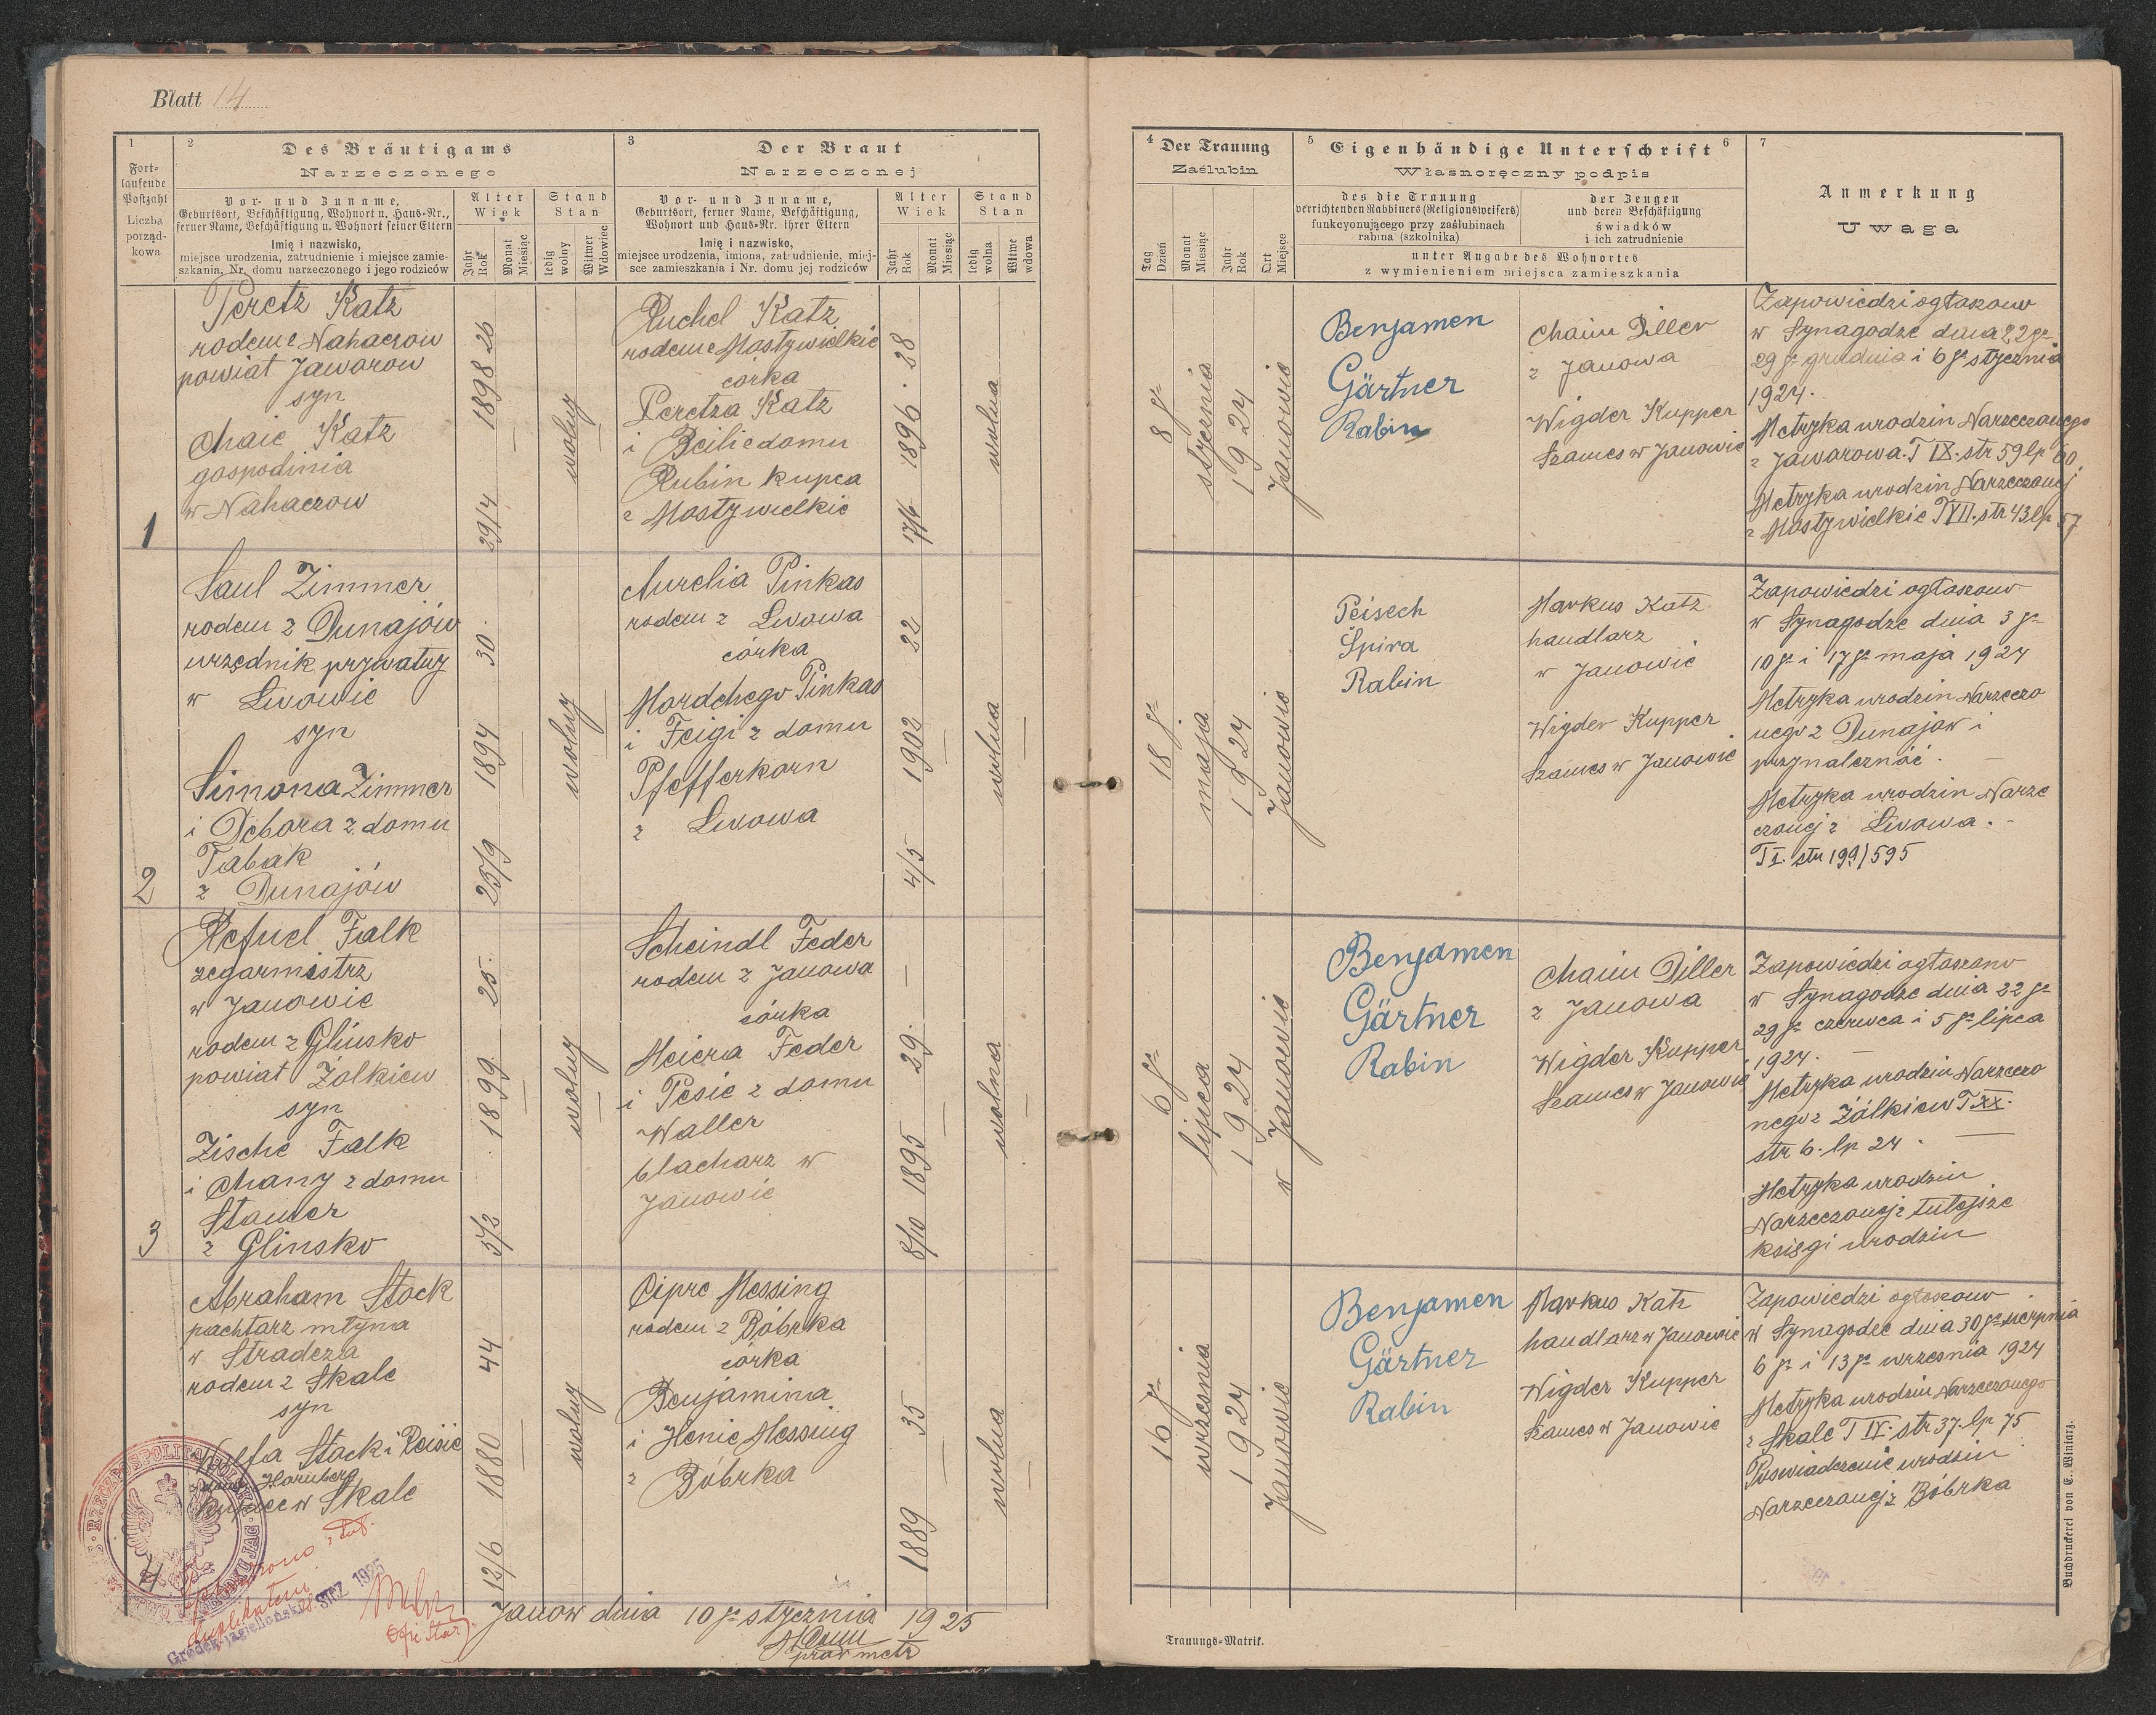 Blatt 14
1
Fort-
laufende
Postzahl
Liczba
porząd-
kowa
2
Des Bräutigams
Narzeczonego
Vor- und Zuname,
Geburtsort, Beschäftigung, Wohnort u. Haus-Nr.,
ferner Name, Beschäftigung u. Wohnort seiner Eltern
Imię i nazwisko,
miejsce urodzenia, zatrudnienie i miejsce zamie-
szkania, Nr. domu narzeczonego i jego rodziców
Alter
Wiek
Jahr
Rok
Monat
Miesiąc
Stand
Stan
ledig
wolny
Witwer
Wdowiec
3
Der Braut
Narzeczonej
Vor- und Zuname,
Geburtsort, ferner Name, Beschäftigung,
Wohnort und Haus-Nr. ihrer Eltern
Imię i nazwisko,
miejsce urodzenia, imiona, zatrudnienie, miej-
sce zamieszkania i Nr. domu jej rodziców
Alter
Wiek
Jahr
Rok
Monat
Miesiąc
Stand
Stan
ledig
wolna
Witwe
wdowa
4
Der Trauung
Zaślubin
Tag
Dzień
Monat
Miesiąc
Jahr
Rok
Ort
Miejsce
5
Eigenhändige Unterschrift
6
Własnoręczny podpis
des die Trauung
verrichtenden Rabbiners (Religionsweisers)
funkcyonującego przy zaślubinach
rabina (szkolnika)
der Zeugen
und deren Beschäftigung
świadków
i ich zatrudnienie
unter Angabe des Wohnortes
z wymienieniem miejsca zamieszkania
7
Anmerkung
Uwaga
1
Peretz Katz
rodem z Nahaczow
powiat Jaworow
syn
Chaie Katz
gospodinia
w Nahaczow
29/4 1898 26
wolny
Ruchel Katz
rodem z Mosty wielkie
córka
Peretza Katz
i Beili z domu
Rubin kupca
z Mosty wielkie
17/6 1896 . 28
wolna
8 go
stycznia
1924
Janowie
Benjamen
Gärtner
Rabin
Chaim Diller
z Janowa
Wigder Kupper
Szames w Janowie
Zapowiedzi ogłaszono
w Synagodze dnia 22 go
29 go grudnia i 6 go stycznia
1924.
Metryka urodzin Narzeczonego
z Jaworowa. T IX. str 59 lp 60
Metryka urodzin Narzeczonej
z Mosty wielkie T VII. str 43 lp 57
2
Saul Zimmer
rodem z Dunajów
urzędnik prywatny
w Lwowie
syn
Simona Zimmer
i Debora z domu
Tabak
z Dunajów
23/9 1894 30
wolny
Aurelia Pinkas
rodem z Lwowa
córka
Mordchego Pinkas
i Feigi z domu
Pfefferkorn
z Lwowa
4/5 1902 22
wolna
18 go
maja
1924
Janowie
Peisech
Spira
Rabin
Markus Katz
handlarz
w Janowie
Wigder Kupper
Szames w Janowie
Zapowiedzi ogłaszono
w Synagodze dnia 3 go
10 go i 17 go maja 1924
Metryka urodzin Narzeczo
nego z Dunajow i
przynależność.
Metryka urodzin Narze
czonej z Lwowa.
T I. str 199/595
3
Refuel Falk
zegarmistrz
w Janowie
rodem z Glinsko
powiat Żólkiew
syn
Zische Falk
i Chany z domu
Stamer
z Glinsko
5/2 1899 25.
wolny
Scheindl Feder
rodem z Janowa
córka
Meiera Feder
i Pesie z domu
Waller
blacharz w
Janowie
8/10 1895 29.
wolna
6 go
lipca
1924
w Janowie
Benjamen
Gärtner
Rabin
Chaim Diller
z Janowa
Wigder Kupper
Szames w Janowie
Zapowiedzi ogłaszono
w Synagodze dnia 22 go
29 go czerwca i 5 go lipca
1924.
Metryka urodzin Narzeczo
nego z Żólkiew T XX.
str 6. lp 24.
Metryka urodzin
Narzeczonej z tutejsze
księgi urodzin
4
Abraham Stock
pachtarz młyna
w Stradcza
rodem z Skale
syn
Wolfa Stock i Reisie
z domu Hornberg
kupiec w Skale
12/6 1880 44
wolny
Cipre Messing
rodem z Bóbrka
córka
Benjamina
i Henie Messing
z Bóbrka
1889 35
wolna
16 go
wrzesnia
1924
Janowie
Benjamen
Gärtner
Rabin
Markus Katz
handlarz w Janowie
Wigder Kupper
Szames w Janowie
Zapowiedzi ogłoszono
w Synagodze dnia 30 go sierpnia
6 go i 13 go wrzesnia 1924
Metryka urodzin Narzeczonego
z Skale T IV. str 37. lp 75
Poswiadczenie urodzin
Narzeczonej z Bóbrka
duplikatem
28. STCZ 1925
Janow dnia 10 go stycznia 1925
prow metr
Trauungs-Matrik.
Buchdruckerei von E. Winiarz.